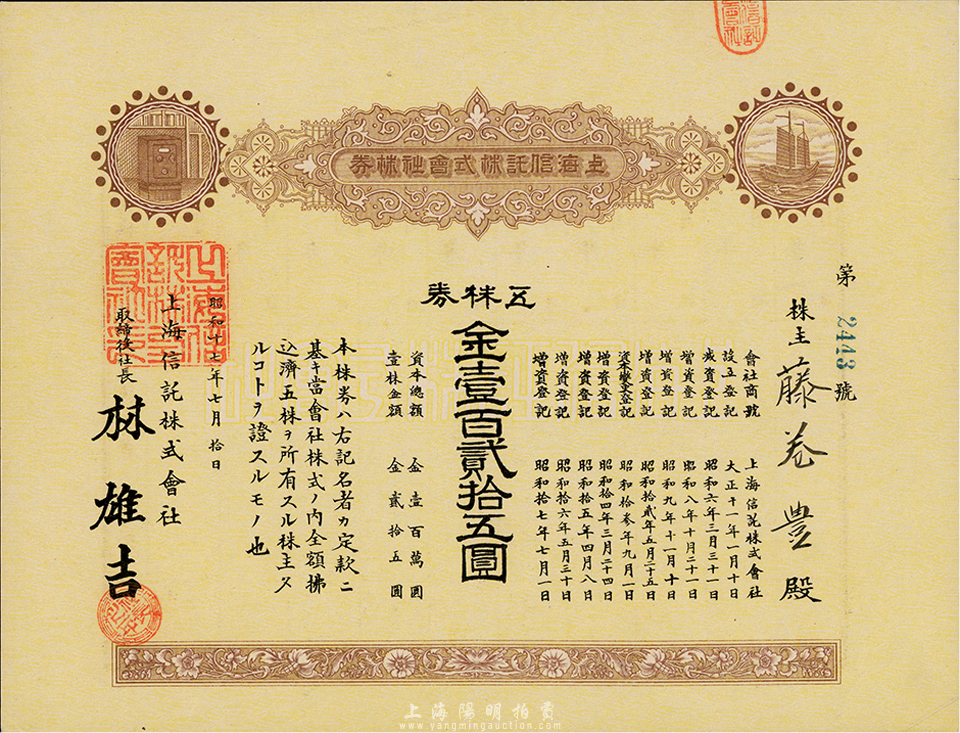 上海信託株式會社株券
第2443號
株主 藤巻豊殿
會社商號 上海信託株式會社
設立登記 大正十一年一月十日
減資登記 昭和六年三月三十一日
增資登記 昭和八年十月二十一日
增資登記 昭和九年十一月十日
增資登記 昭和拾貳年五月二十五日
資本變更登記 昭和拾参年九月一日
增資登記 昭和拾四年三月二十四日
增資登記 昭和拾五年四月八日
增資登記 昭和拾六年五月三十日
增資登記 昭和拾七年七月一日
五株券
金壹百貳拾五圓
資本總額 金壹百萬圓
壹株金額 金貳拾五圓
本株券ハ右記名者カ定款ニ
基キ當會社株式ノ內全額拂
込濟五株ヲ所有スル株主タ
ルコトヲ證スルモノ也
昭和十七年七月拾日
上海信託株式會社
取締役社長 林雄吉
上海陽明拍賣
www.yangmingauction.com